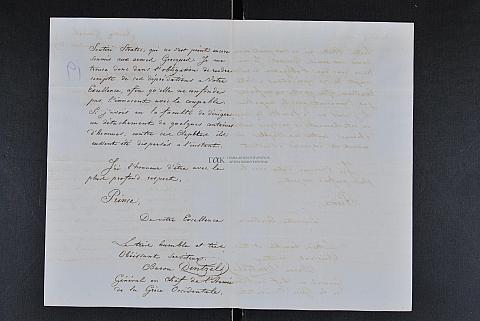 Sotiri Strates, qui ne s'est point encore
soumis aux armes Grecques. Je me
trouve donc dans l'obligation de rendre
compte de ces dépredations a Votre
Excellence, afin qu'elle ne confonde
pas l'innocent avec le coupable.
Si j'avois eu la faculté de diriger
un détachement de quelques centaines
d'hommes, contre ces Clephtes ils
eussent été dispersés a l'instant.
J'ai l'honneur d'être avec le
plus profond respect,
Prince,
De votre Excellence
Le très humble et très
Obéissant serviteur
Baron Dentzel
Général en Chef de l'Armée
de la Grèce Occidentale.
ΓΑΚ